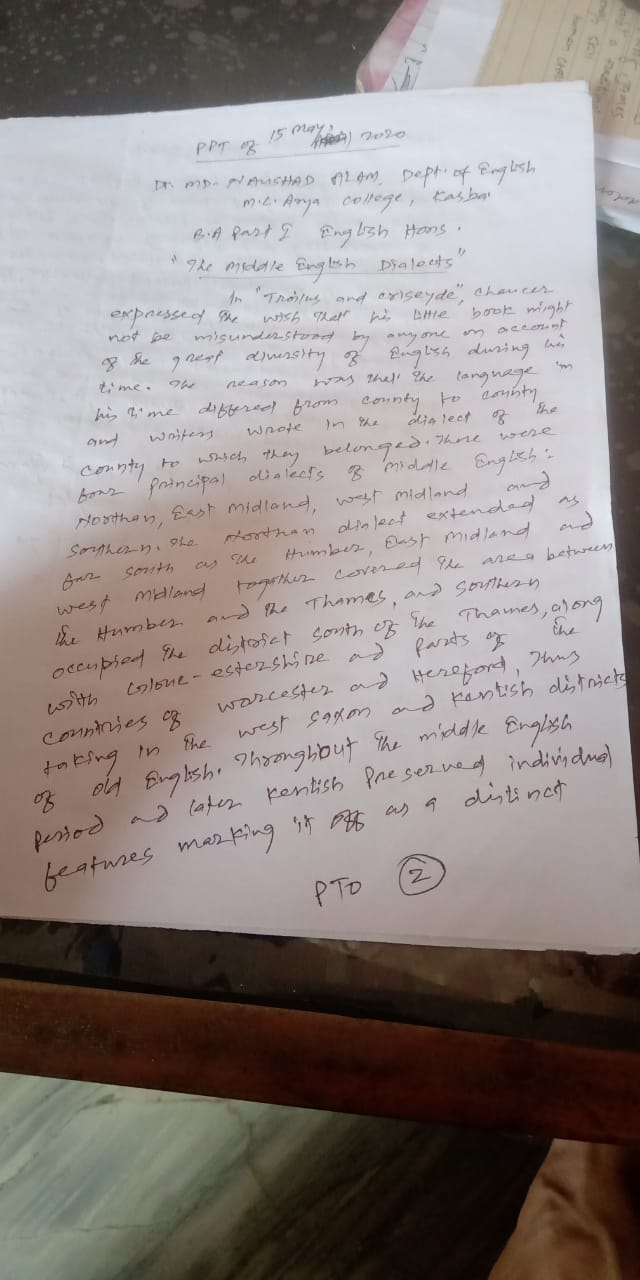 PPT of 15 May, 2020
Dr. MD. NAUSHAD ALAM, Dept. of English
M.L. Arya College, Kasba
B.A Part I English Hons.
"The Middle English Dialects"
In "Troilus and criseyde", chaucer
expressed the wish that his little book might
not be misunderstood by anyone on account
of the great diversity of English during his
time. The reason was that the language in
his time differed from county to county
and writers wrote in the dialect of the
county to which they belonged. There were
four principal dialects of Middle English:
Northan, East Midland, West Midland and
Southern. The Northan dialect extended as
far south as the Humber, East Midland and
West Midland together covered the area between
the Humber and the Thames, and Southern
occupied the district south of the Thames, along
with Gloucestershire and parts of the
countries of Worcester and Hereford, Thus
taking in the West Saxon and Kentish districts
of old English. Throughout the middle English
period and later Kentish preserved individual
features marking it off as a distinct
PTO 2